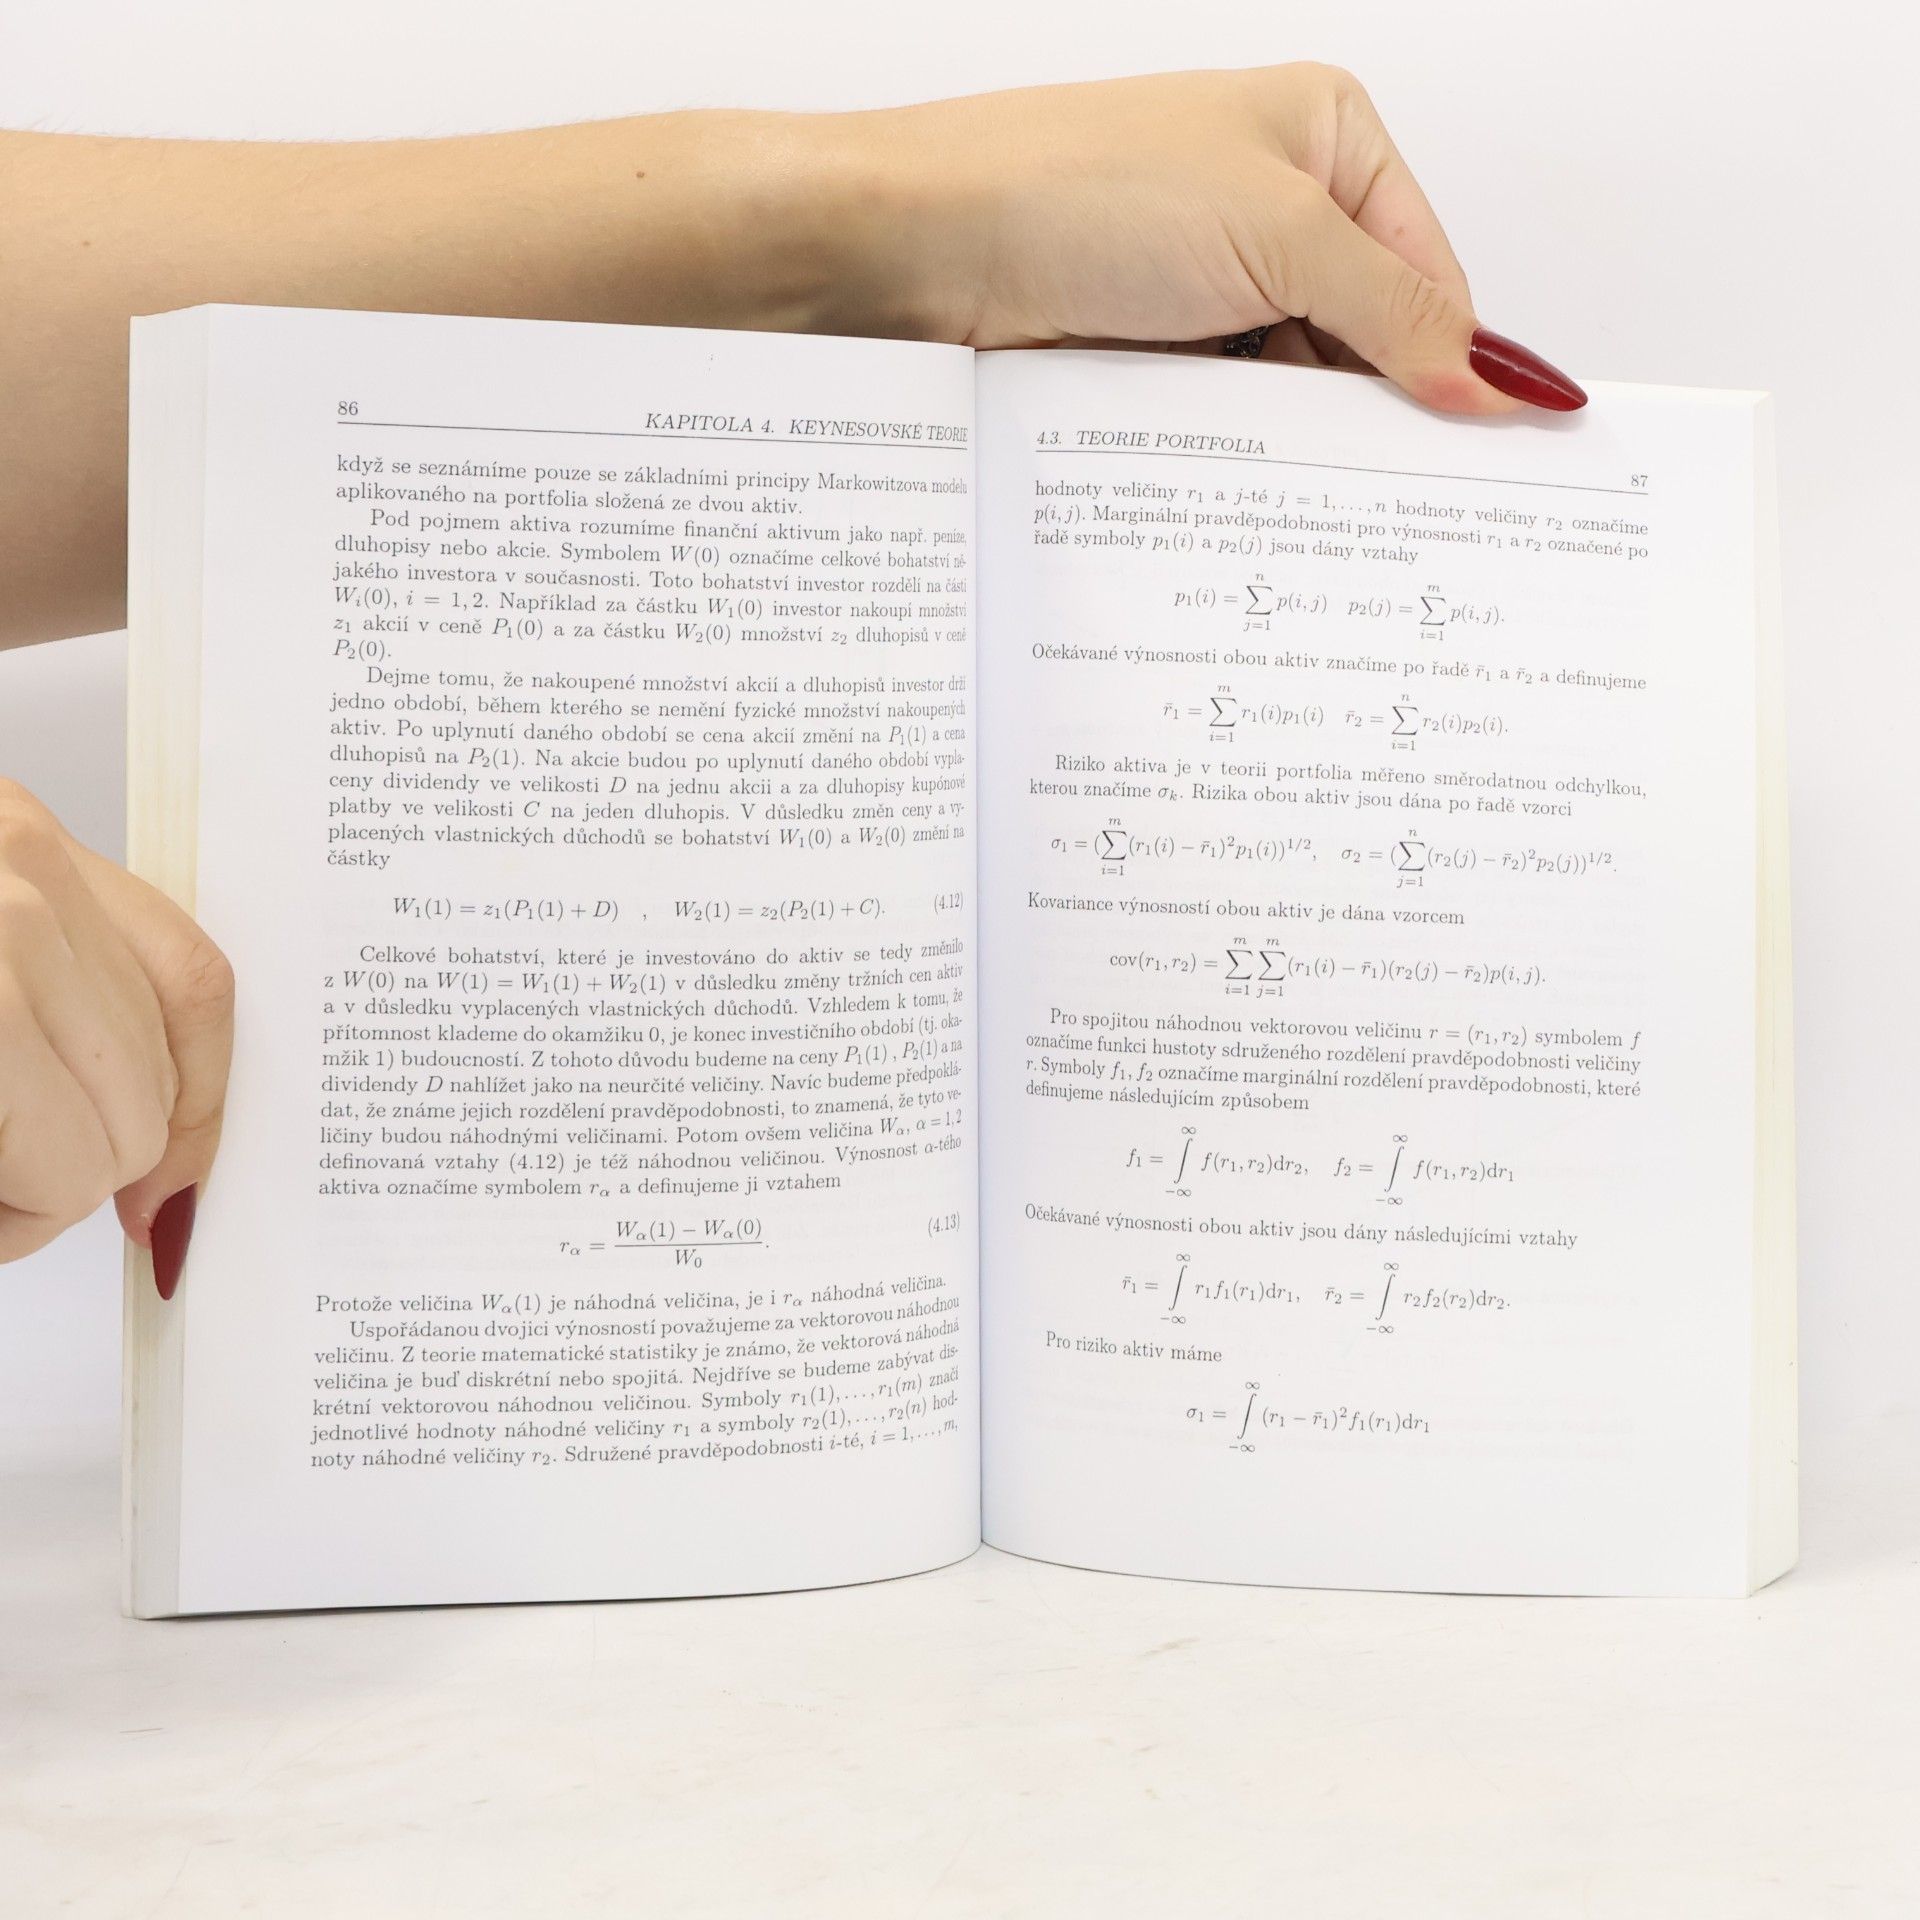 86
KAPITOLA 4. KEYNESOVSKÉ TEORIE
když se seznámíme pouze se základními principy Markowitzova modelu
aplikovaného na portfolia složená ze dvou aktiv.
Pod pojmem aktiva rozumíme finanční aktivum jako např. peníze,
dluhopisy nebo akcie. Symbolem W(0) označíme celkové bohatství ně-
jakého investora v současnosti. Toto bohatství investor rozdělí na části
Wᵢ(0), i = 1, 2. Například za částku W₁(0) investor nakoupí množství
z₁ akcií v ceně P₁(0) a za částku W₂(0) množství z₂ dluhopisů v ceně
P₂(0).
Dejme tomu, že nakoupené množství akcií a dluhopisů investor drží
jedno období, během kterého se nemění fyzické množství nakoupených
aktiv. Po uplynutí daného období se cena akcií změní na P₁(1) a cena
dluhopisů na P₂(1). Na akcie budou po uplynutí daného období vypla-
ceny dividendy ve velikosti D na jednu akcii a za dluhopisy kupónové
platby ve velikosti C na jeden dluhopis. V důsledku změn ceny a vy-
placených vlastnických důchodů se bohatství W₁(0) a W₂(0) změní na
částky
W₁(1) = z₁(P₁(1) + D) , W₂(1) = z₂(P₂(1) + C). (4.12)
Celkové bohatství, které je investováno do aktiv se tedy změnilo
z W(0) na W(1) = W₁(1) + W₂(1) v důsledku změny tržních cen aktiv
a v důsledku vyplacených vlastnických důchodů. Vzhledem k tomu, že
přítomnost klademe do okamžiku 0, je konec investičního období (tj. oka-
mžik 1) budoucností. Z tohoto důvodu budeme na ceny P₁(1) , P₂(1) a na
dividendy D nahlížet jako na neurčité veličiny. Navíc budeme předpoklá-
dat, že známe jejich rozdělení pravděpodobnosti, to znamená, že tyto ve-
ličiny budou náhodnými veličinami. Potom ovšem veličina Wα, α = 1, 2
definovaná vztahy (4.12) je též náhodnou veličinou. Výnosnost α-tého
aktiva označíme symbolem rα a definujeme ji vztahem
rα = (Wα(1) − Wα(0)) / W₀. (4.13)
Protože veličina Wα(1) je náhodná veličina, je i rα náhodná veličina.
Uspořádanou dvojici výnosností považujeme za vektorovou náhodnou
veličinu. Z teorie matematické statistiky je známo, že vektorová náhodná
veličina je buď diskrétní nebo spojitá. Nejdříve se budeme zabývat dis-
krétní vektorovou náhodnou veličinou. Symboly r₁(1), . . . , r₁(m) značí
jednotlivé hodnoty náhodné veličiny r₁ a symboly r₂(1), . . . , r₂(n) hod-
noty náhodné veličiny r₂. Sdružené pravděpodobnosti i-té, i = 1, . . . , m,
4.3. TEORIE PORTFOLIA
87
hodnoty veličiny r₁ a j-té j = 1, . . . , n hodnoty veličiny r₂ označíme
p(i, j). Marginální pravděpodobnosti pro výnosnosti r₁ a r₂ označené po
řadě symboly p₁(i) a p₂(j) jsou dány vztahy
p₁(i) = ∑_{j=1}^{n} p(i, j) p₂(j) = ∑_{i=1}^{m} p(i, j).
Očekávané výnosnosti obou aktiv značíme po řadě r̄₁ a r̄₂ a definujeme
r̄₁ = ∑_{i=1}^{m} r₁(i)p₁(i) r̄₂ = ∑_{i=1}^{n} r₂(i)p₂(i).
Riziko aktiva je v teorii portfolia měřeno směrodatnou odchylkou,
kterou značíme σₖ. Rizika obou aktiv jsou dána po řadě vzorci
σ₁ = (∑_{i=1}^{m} (r₁(i) − r̄₁)²p₁(i))^{1/2}, σ₂ = (∑_{j=1}^{n} (r₂(j) − r̄₂)²p₂(j))^{1/2}.
Kovariance výnosností obou aktiv je dána vzorcem
cov(r₁, r₂) = ∑_{i=1}^{m} ∑_{j=1}^{m} (r₁(i) − r̄₁)(r₂(j) − r̄₂)p(i, j).
Pro spojitou náhodnou vektorovou veličinu r = (r₁, r₂) symbolem f
označíme funkci hustoty sdruženého rozdělení pravděpodobnosti veličiny
r. Symboly f₁, f₂ označíme marginální rozdělení pravděpodobnosti, které
definujeme následujícím způsobem
f₁ = ∫_{−∞}^{∞} f(r₁, r₂)dr₂, f₂ = ∫_{−∞}^{∞} f(r₁, r₂)dr₁
Očekávané výnosnosti obou aktiv jsou dány následujícími vztahy
r̄₁ = ∫_{−∞}^{∞} r₁f₁(r₁)dr₁, r̄₂ = ∫_{−∞}^{∞} r₂f₂(r₂)dr₂.
Pro riziko aktiv máme
σ₁ = ∫_{−∞}^{∞} (r₁ − r̄₁)²f₁(r₁)dr₁